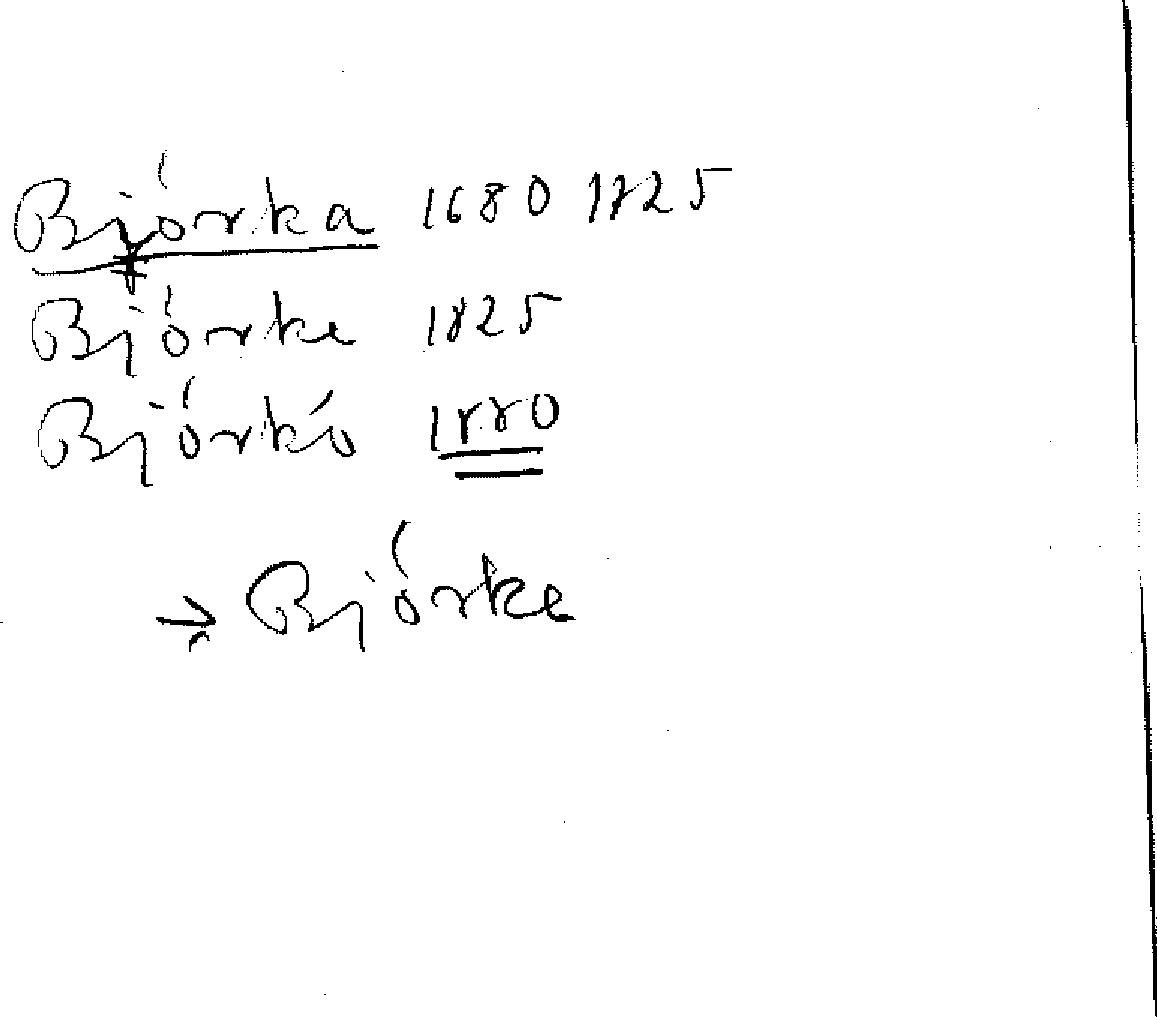 Bjórka 1680 1825
Bjórke 1825
Bjórkó 1880
→ Bjórke